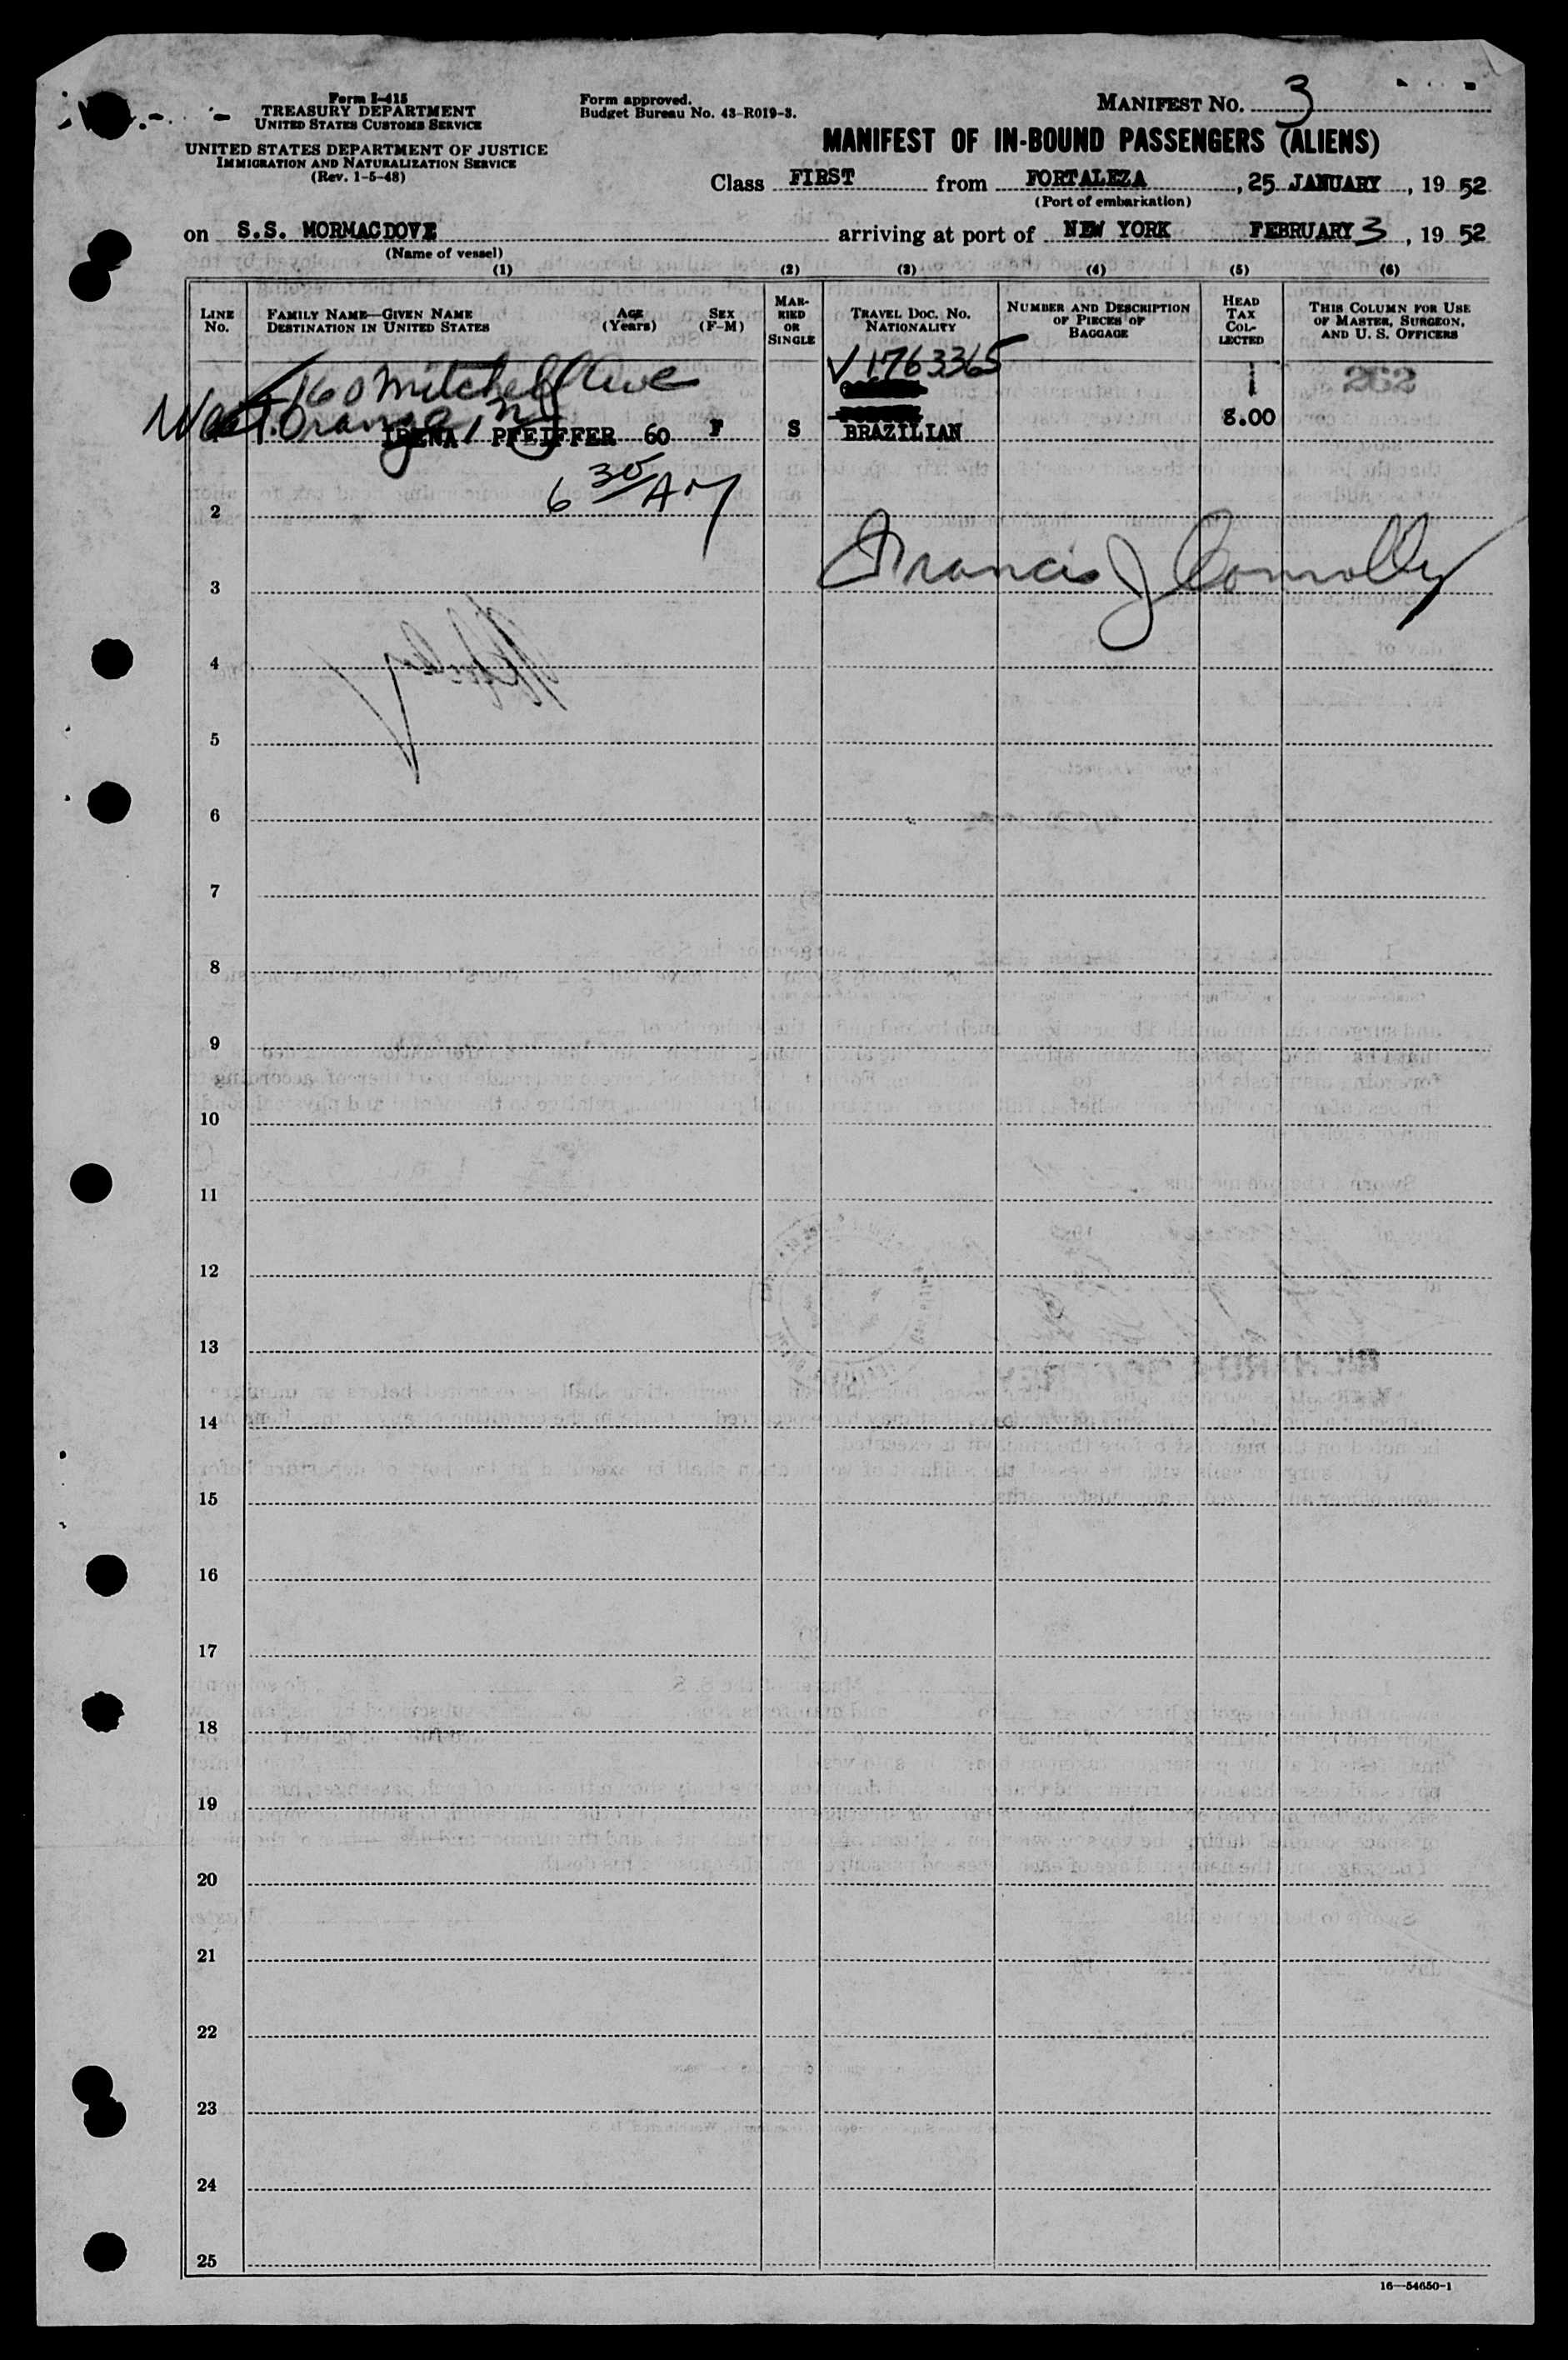 Form I-415
TREASURY DEPARTMENT
UNITED STATES CUSTOMS SERVICE
UNITED STATES DEPARTMENT OF JUSTICE
IMMIGRATION AND NATURALIZATION SERVICE
(Rev. 1-5-48)
Form approved.
Budget Bureau No. 43-R019-3.
MANIFEST NO. 3
MANIFEST OF IN-BOUND PASSENGERS (ALIENS)
Class FIRST from FORTALEZA, 25 JANUARY, 19 52
(Port of embarkation)
on S.S. MORMACDOVE arriving at port of NEW YORK FEBRUARY 3, 19 52
(Name of vessel)
(1) (2) (3) (4) (5) (6)
LINE No. FAMILY NAME—GIVEN NAME DESTINATION IN UNITED STATES AGE (Years) SEX (F-M) MARRIED OR SINGLE TRAVEL DOC. NO. NATIONALITY NUMBER AND DESCRIPTION OF PIECES OF BAGGAGE HEAD TAX COLLECTED THIS COLUMN FOR USE OF MASTER, SURGEON, AND U. S. OFFICERS
160 Mitchell Ave V 1763365
West Orange, NJ 8.00
IRENA PFEIFFER 60 F S BRAZILIAN
6 30 AM
2
Francis J Connolly
3
4
5
6
7
8
9
10
11
12
13
14
15
16
17
18
19
20
21
22
23
24
25
16—54650-1